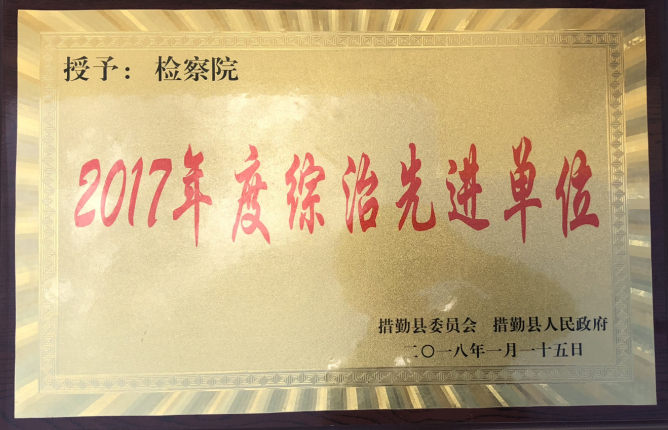 授予：检察院
2017年度综治先进单位
措勤县委员会 措勤县人民政府
二〇一八年一月一十五日